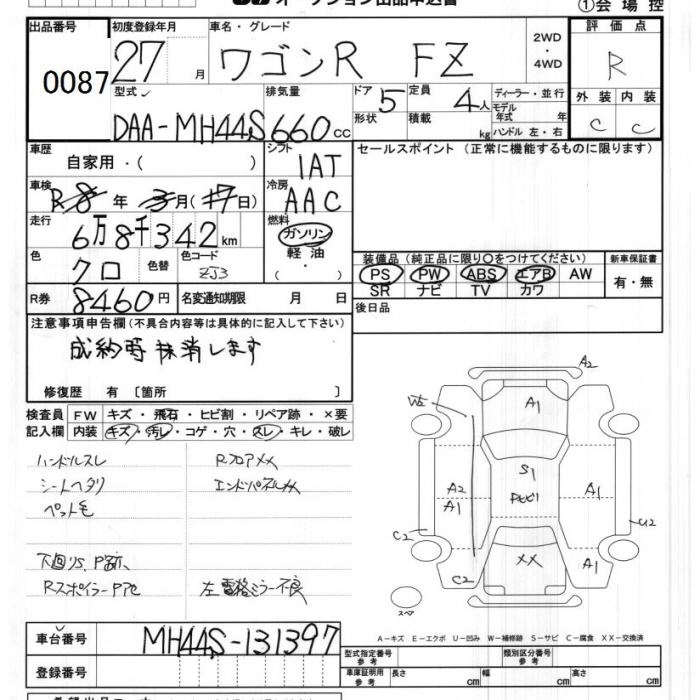 オークション出品申込書
①会場控
出品番号 0087
初度登録年月 27 月
車名・グレード ワゴンR FZ
2WD・4WD
評価点 R
型式 DAA-MH44S
排気量 660cc
ドア 5 形状
定員 4人 積載 kg
ディーラー・並行
モデル年式 年
ハンドル 左・右
外装 C 内装 C
車歴 自家用・( )
シフト IAT
セールスポイント(正常に機能するものに限ります)
車検 R8年 3月(17日)
冷房 AAC
走行 6万8千342km
燃料 ガソリン 軽油 ( ・ )
色 クロ 色替 色コード ZJ3
装備品(純正品に限り○をつけてください)
新車保証書
PS PW ABS エアB AW
有・無
SR ナビ TV カワ
R券 8460円 名変通知期限 月 日
後日品
注意事項申告欄(不具合内容等は具体的に記入して下さい)
成約時抹消します
修復歴 有 〔箇所 〕
検査員 FW キズ・飛石・ヒビ割・リペア跡・×要
記入欄 内装 キズ・汚レ・コゲ・穴・スレ・キレ・破レ
ハンドルスレ RフロアXX
シートヘタリ エンドパネルXX
ペット毛
Rスポイラー
左電格ミラー不良
A2
W2
A1
S1
A2
A1
A1
C2
U2
XX
A1
C2
スペア
A−キズ E−エクボ U−凹み W−補修跡 S−サビ C−腐食 XX−交換済
車台番号 MH44S-131397
型式指定番号 参考 類別区分番号 参考
登録番号
車庫証明用 参考 長さ cm 幅 cm 高さ cm